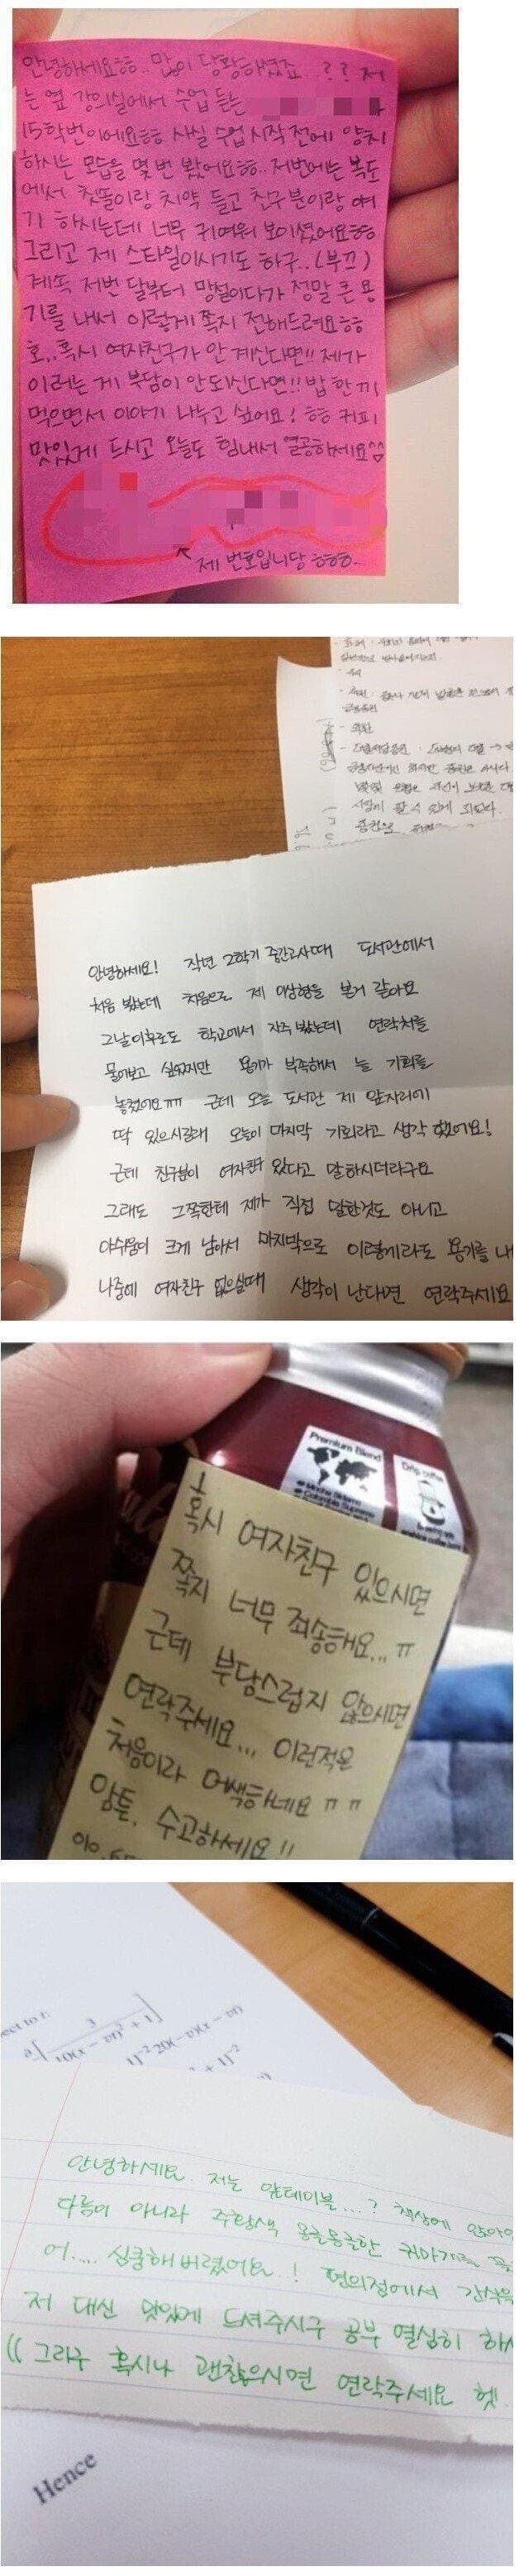 안녕하세요ㅎㅎ.. 많이 당황하셨죠..?? 저
는 옆 강의실에서 수업 듣는
15학번이에요ㅎㅎ 사실 수업 시작 전에 양치
하시는 모습을 몇 번 봤어요ㅎㅎ.. 저번에는 복도
에서 칫똘이랑 치약 들고 친구분이랑 얘
기 하시는데 너무 귀여워 보이셨어요ㅎㅎ
그리고 제 스타일이시기도 하구..(부끄)
계속 저번 달부터 망설이다가 정말 큰 용
기를 내서 이렇게 쪽지 전해드려요ㅎㅎ
호,,혹시 여자친구가 안 계신다면!! 제가
이러는 게 부담이 안되신다면!! 밥 한 끼
먹으면서 이야기 나누고 싶어요! ㅎㅎ 커피
맛있게 드시고 오늘도 힘내서 열공하세요^^
제 번호입니당 ㅎㅎㅎ..
안녕하세요! 작년 2학기 중간고사때 도서관에서
처음 봤는데 처음으로 제 이상형을 본거 같아요
그날이후로도 학교에서 자주 봤는데 연락처를
물어보고 싶었지만 용기가 부족해서 늘 기회를
놓쳤어요ㅠㅠ 근데 오늘 도서관 제 앞자리에
딱 있으시길래 오늘이 마지막 기회라고 생각 했어요!
근데 친구분이 여자친구 있다고 말하시더라구요
그래도 그쪽한테 제가 직접 말한것도 아니고
아쉬움이 크게 남아서 마지막으로 이렇게라도 용기를 내
나중에 여자친구 없으실때 생각이 난다면 연락주세요
Premium Blend
Drip coffee
혹시 여자친구 있으시면
쪽지 너무 죄송해요... ㅠ
근데 부담스럽지 않으시면
연락주세요... 이런적은
처음이라 어색하네요 ㅠㅠ
암튼, 수고하세요!!
안녕하세요. 저는 앞테이블...? 책상에 앉아
다름이 아니라 주황색 몽글몽글한 귀마개를
어.... 심쿵해버렸어요..! 편의점에서 간식을
저 대신 맛있게 드셔주시구 공부 열심히 하
(( 그라구 혹시나 괜찮으시면 연락주세요 헷!
Hence